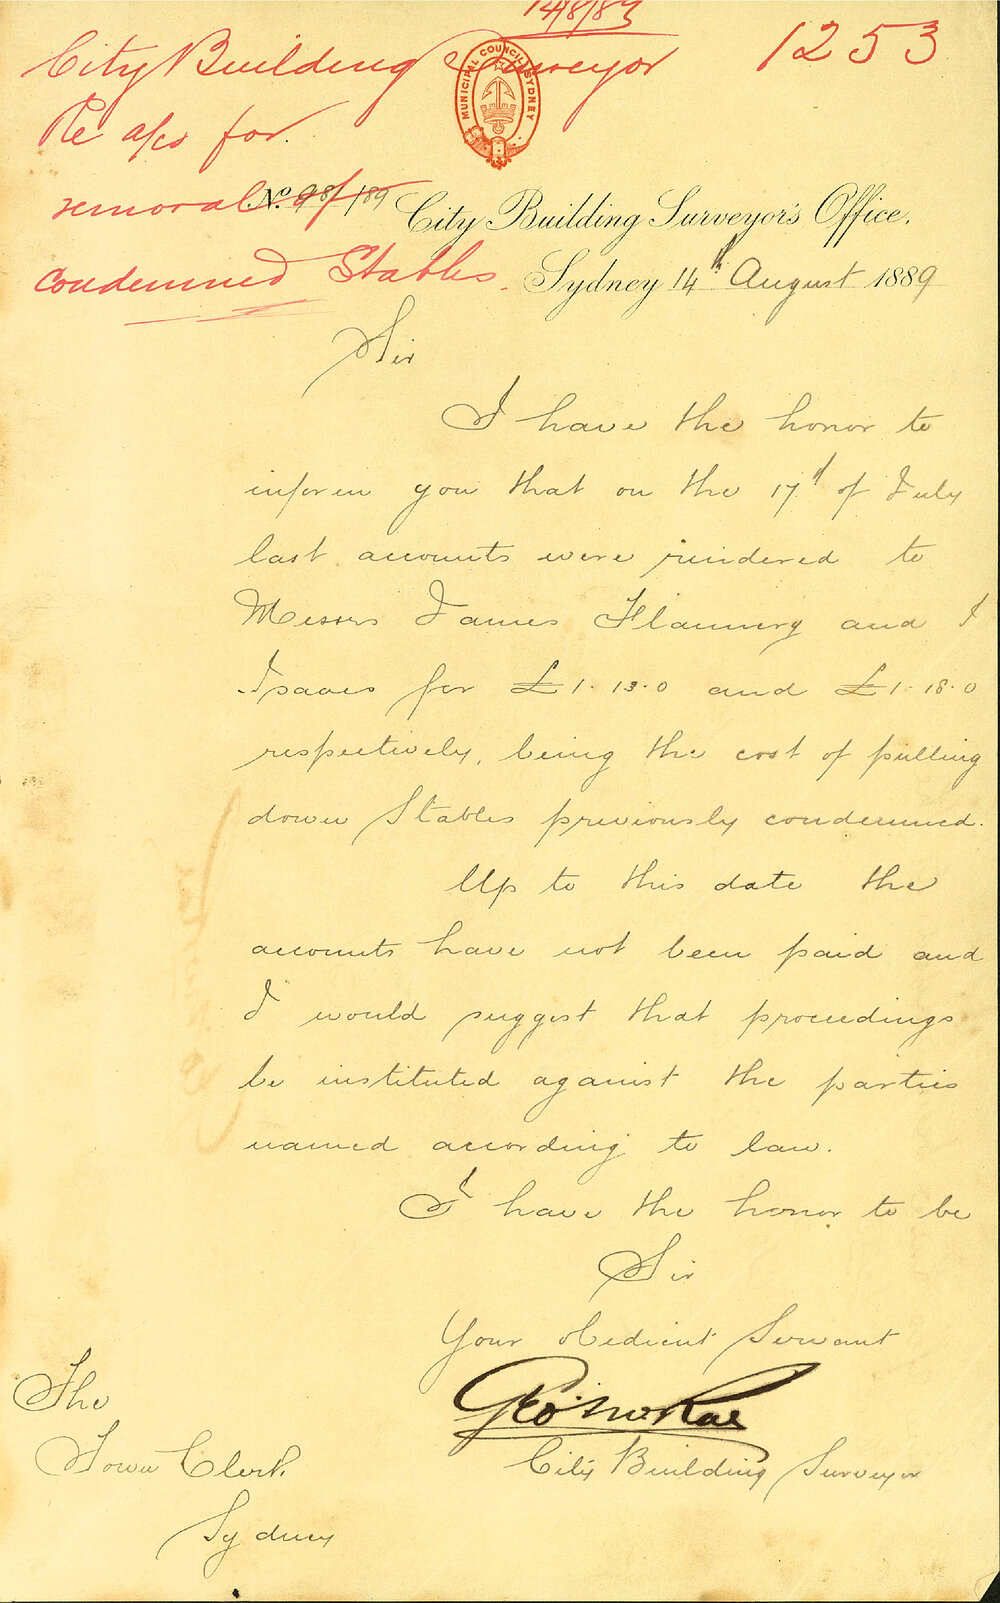 14/8/89
City Building Surveyor
1253
Re a/cs for
removal of
condemned Stables.
MUNICIPAL COUNCIL SYDNEY
No. 98/189
City Building Surveyor's Office,
Sydney 14th August 1889
Sir
I have the honor to
inform you that on the 17th of July
last accounts were rendered to
Messrs James Flannery and I
Isaacs for £1.13.0 and £1.18.0
respectively, being the cost of pulling
down Stables previously condemned.
Up to this date the
accounts have not been paid and
I would suggest that proceedings
be instituted against the parties
named according to law.
I have the honor to be
Sir
Your obedient Servant
Geo McRae
City Building Surveyor
The
Town Clerk
Sydney